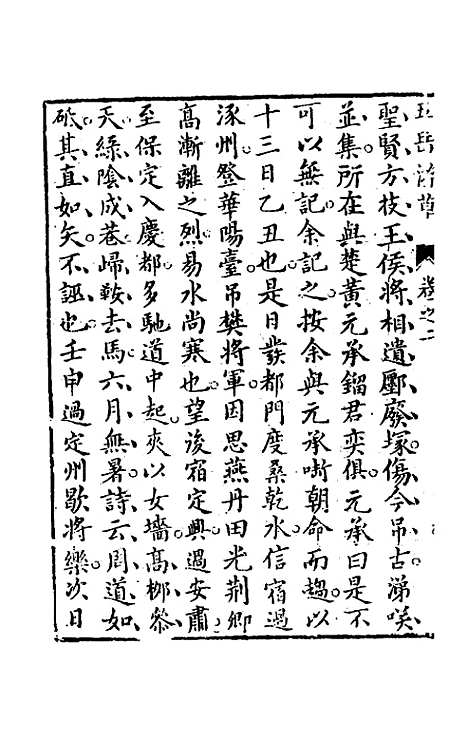 五岳游草 卷之二
聖賢方技王侯將相遺壓廢塚傷今吊古涕咲
並集所在與楚黃元承鎦君奕俱元承曰是不
可以無記余記之按余與元承啣朝命而趨以
十三日乙丑也是日發都門度桑乾水信宿過
涿州登華陽臺吊樊將軍因思燕丹田光荆卿
高漸離之烈易水尚寒也望後宿定興過安肅
至保定入慶都多馳道中起夾以女墻高栁參
天綠陰成巷歸鞍去馬六月無暑詩云周道如
砥其直如矢不誣也壬申過定州歇將樂次日